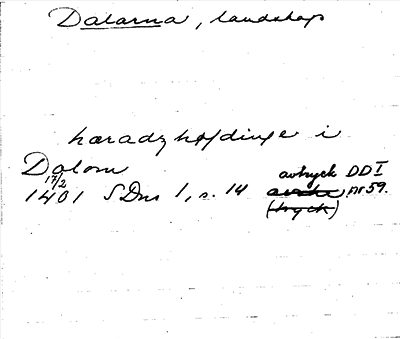 Dalarna, landskap
haradzhofdinge i
Dalom avtryck DD I
17/2
1401 SDns 1, s. 14 nr 59.
(tryck)